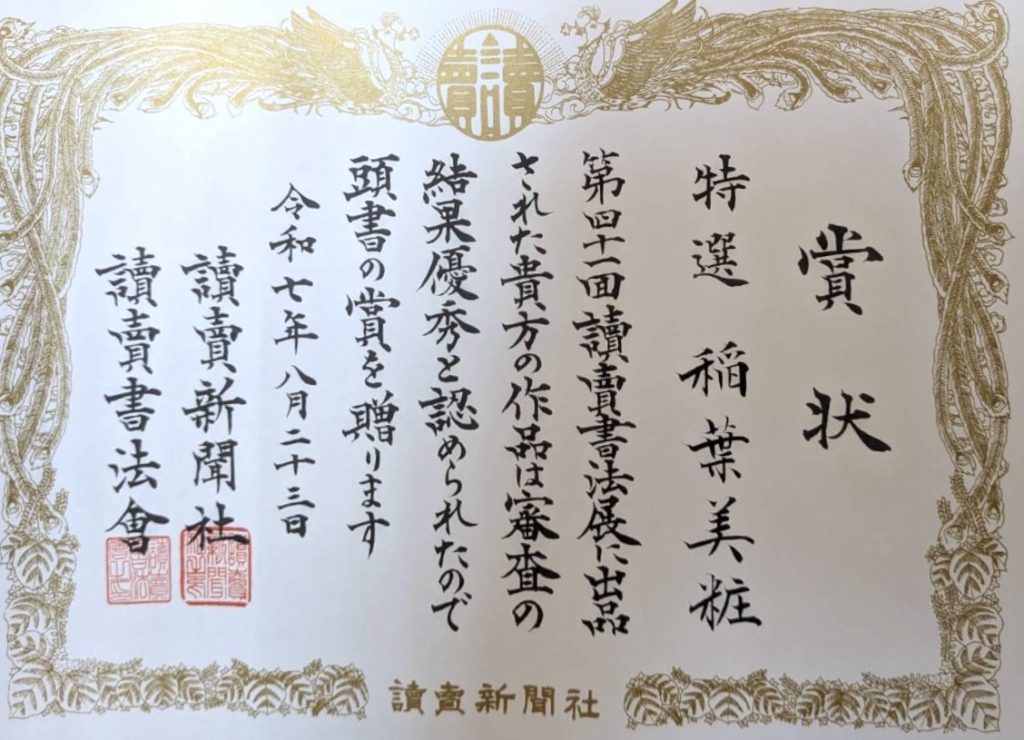 賞状
特選 稲葉美粧
第四十一回讀賣書法展に出品
された貴方の作品は審査の
結果優秀と認められたので
頭書の賞を贈ります
令和七年八月二十三日
讀賣新聞社
讀賣書法會
讀賣新聞社